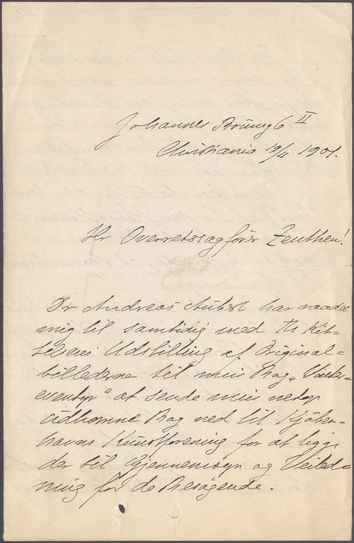 Johannes Brunsg 6 II
Christiania 19/11 1901.
Hr Overretssagfører Zeuthen!
Dr Andreas Aubert har raadet
mig til samtidig med Th. Kit-
telsens Udstilling af Original-
billederne til min Bog
eventyr" at sende min netop
udkomne Bog ned til Kjøben-
havns Kunstforening for at ligge
der til Gjennemsyn og Veiled-
ning for de Besøgende.